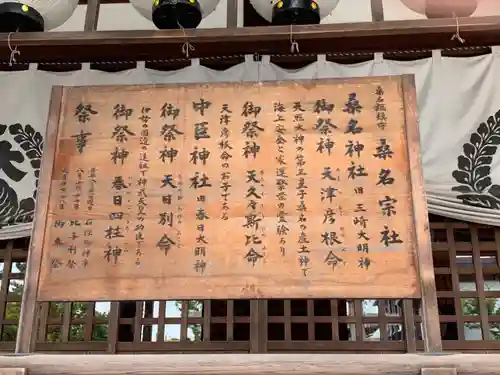 桑名総鎮守 桑名宗社
桑名神社 旧 三崎大明神
御祭神 天津彦根命
天照大神の第三皇子桑名の産土神
海上安全と家運繁栄の霊験あり
御祭神 天久々斯比命
天津彦根命の御子である
中臣神社 旧 春日大明神
御祭神 天日別命
伊勢の国造の遠祖で神武天皇の功臣
御祭神 春日四柱神
祭事
石取御神事
比与利祭
御車祭